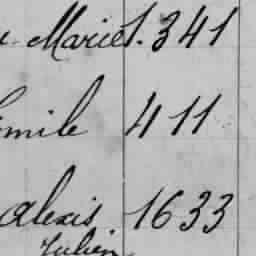 Marie 1.341
Emile 411
Alexis 1633
Julien